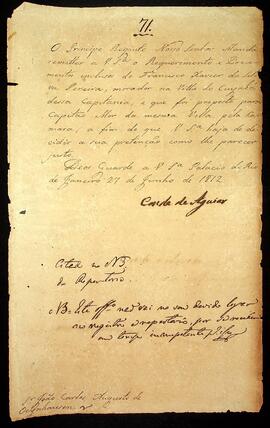 71.
O Principe Regente Nosso Senhor Manda
remetter a V. Sª o Requerimento e Docu-
mentos inclusos de Francisco Xavier da
Pereira, morador na Villa do
dessa Capitania, e que foi proposto para
Capitão Mor da mesma Villa, pela Ca-
mara, a fim de que V. Sª haja de de-
cidir a sua pretenção como lhe parecer
justo.
Deos Guarde a V. Sª Palacio do Rio
de Janeiro 27 de Junho de 1812
Conde de Aguiar
Cited no N3
do Repertorio.
NB Este offº não vai no seu devido lugar
no registro e repertorio por
em tempo incompetente
Sr João Carlos Augusto de
Oeynhausen